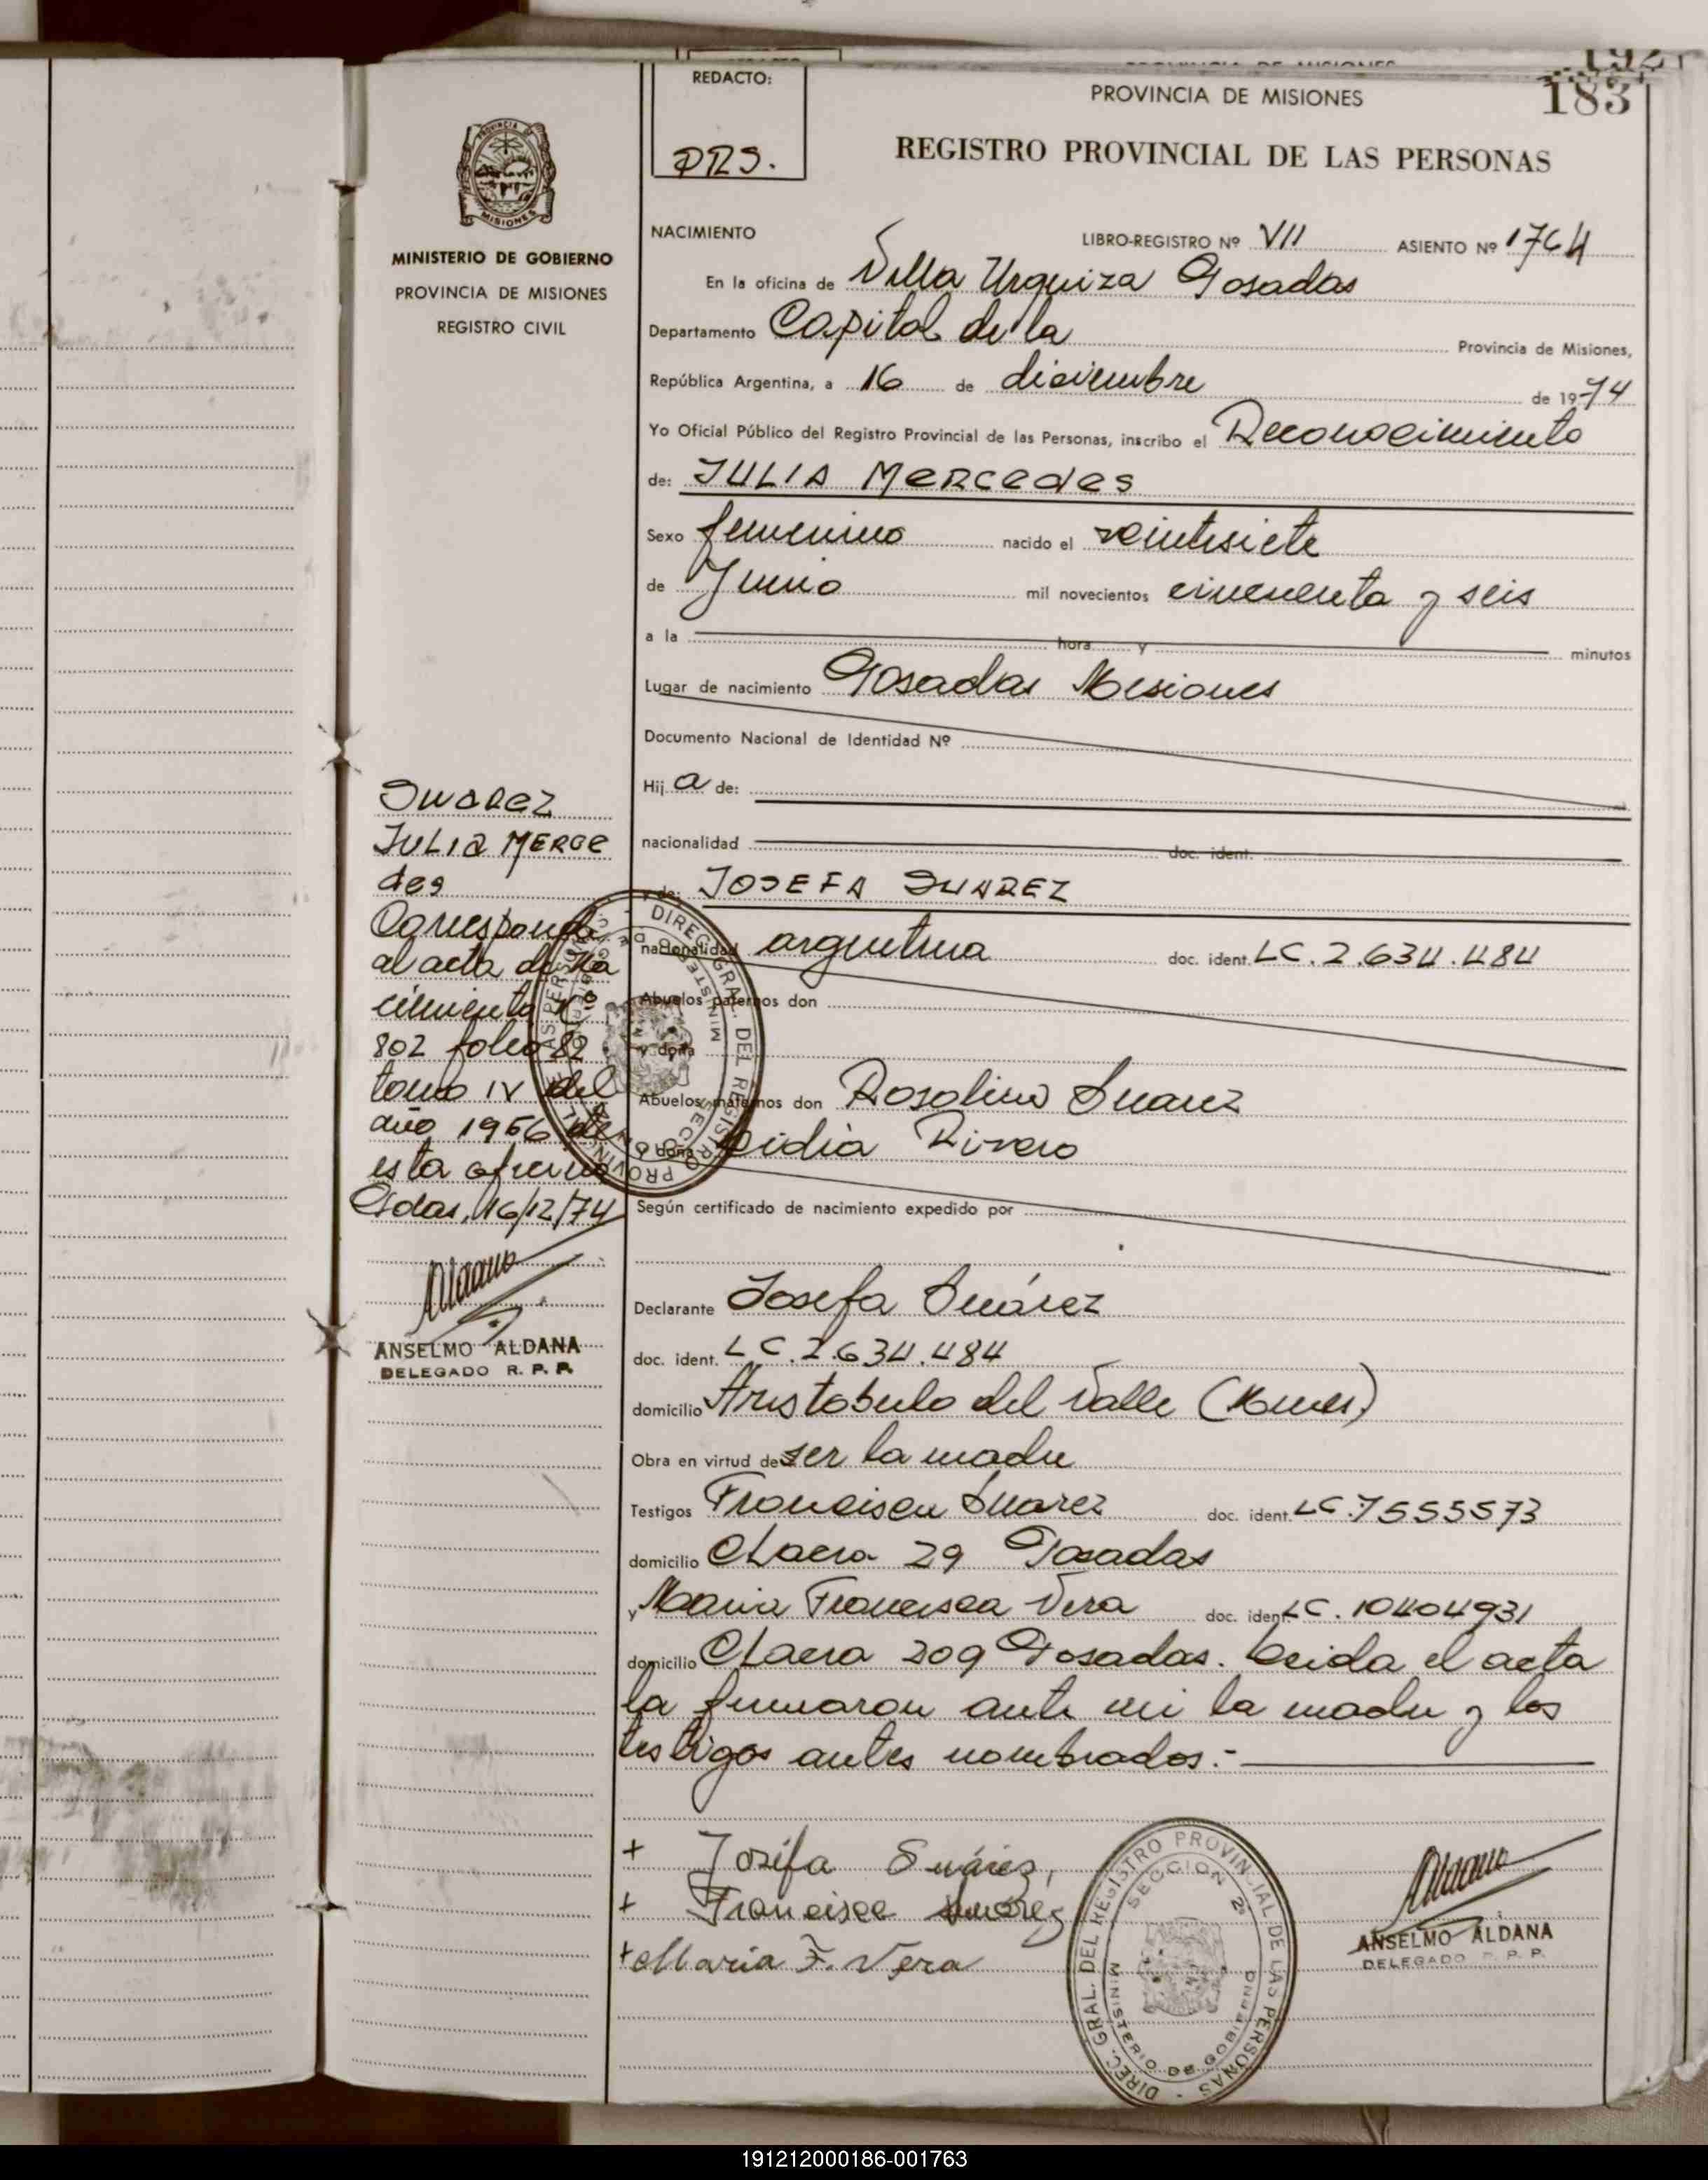 192
183
REDACTO:
PROVINCIA DE MISIONES
REGISTRO PROVINCIAL DE LAS PERSONAS
PROVINCIA DE
MISIONES
MINISTERIO DE GOBIERNO
PROVINCIA DE MISIONES
REGISTRO CIVIL
NACIMIENTO LIBRO-REGISTRO Nº VII ASIENTO Nº 1764
En la oficina de Villa Urquiza Posadas
Departamento Capital de la Provincia de Misiones,
República Argentina, a 16 de diciembre de 1974
Yo Oficial Público del Registro Provincial de las Personas, inscribo el Reconocimiento
de: JULIA MERCEDES
Sexo femenino nacido el veintisiete
de Junio mil novecientos cincuenta y seis
a la hora y minutos
Lugar de nacimiento Posadas Misiones
Documento Nacional de Identidad Nº
Hij a de:
nacionalidad doc. ident.
y de: JOSEFA SUAREZ
nacionalidad argentina doc. ident. LC. 2.634.484
Abuelos paternos don
y doña
Abuelos maternos don Rosalino Suarez
y doña Lidia Rivero
Según certificado de nacimiento expedido por
Declarante Josefa Suárez
doc. ident. LC. 2.634.484
domicilio Aristobulo del Valle (Mnes)
Obra en virtud de ser la madre
Testigos Francisca Suarez doc. ident. LC. 7555573
domicilio Chacra 29 Posadas
y Maria Francisca Vera doc. ident. LC. 10404931
domicilio Chacra 209 Posadas. Leida el acta
la firmaron ante mi la madre y los
testigos antes nombrados.-
SUAREZ
JULIA MERCE
des
Corresponde
al acta de Na
cimiento Nº
802 folio 82
tomo IV del
año 1956 de
esta oficina
Psdas, 16/12/74
Aldana
ANSELMO ALDANA
DELEGADO R. P. P.
DIREC. GRAL. DEL REGISTRO PROVINCIAL DE LAS PERSONAS
MINISTERIO DE GOBIERNO
SECCION
+ Josefa Suárez,
+ Francisca Suarez
+ Maria F. Vera
DIREC. GRAL. DEL REGISTRO PROVINCIAL DE LAS PERSONAS
SECCION 2ª
MINISTERIO DE GOBIERNO
Aldana
ANSELMO ALDANA
DELEGADO R. P. P.
191212000186-001763